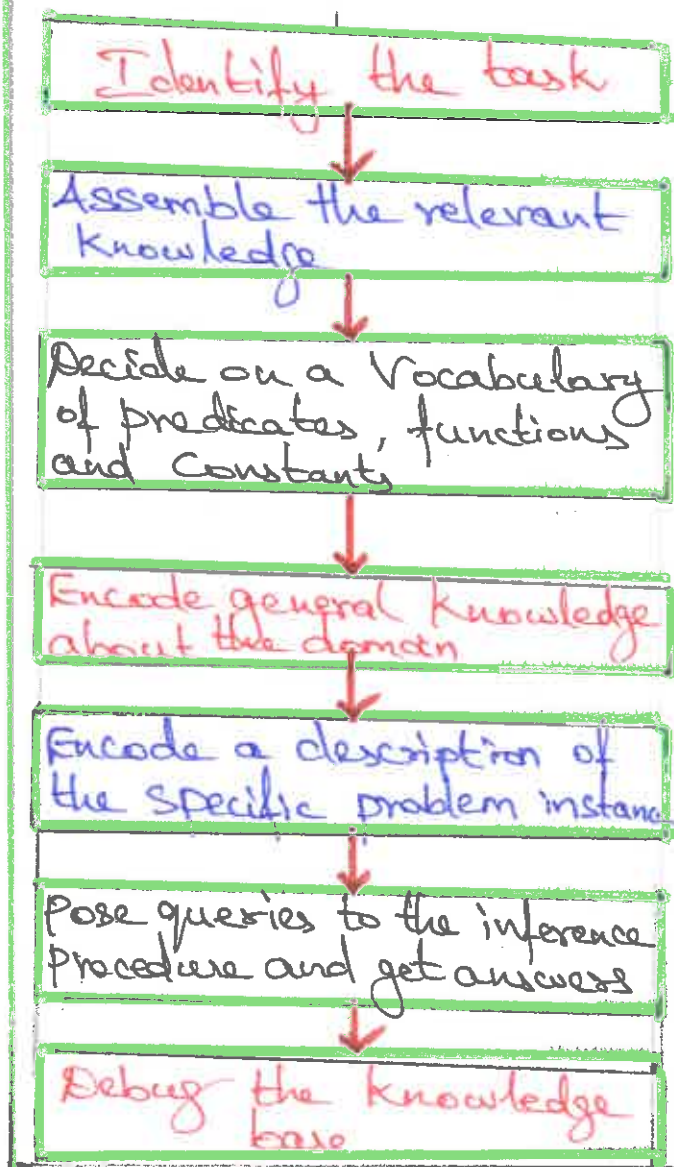 Identify the task
Assemble the relevant
Knowledge
Decide on a Vocabulary
of predicates, functions
and Constants
Encode general Knowledge
about the domain
Encode a description of
the specific problem instanc
Pose queries to the inference
Procedure and get answers
Debug the Knowledge
base